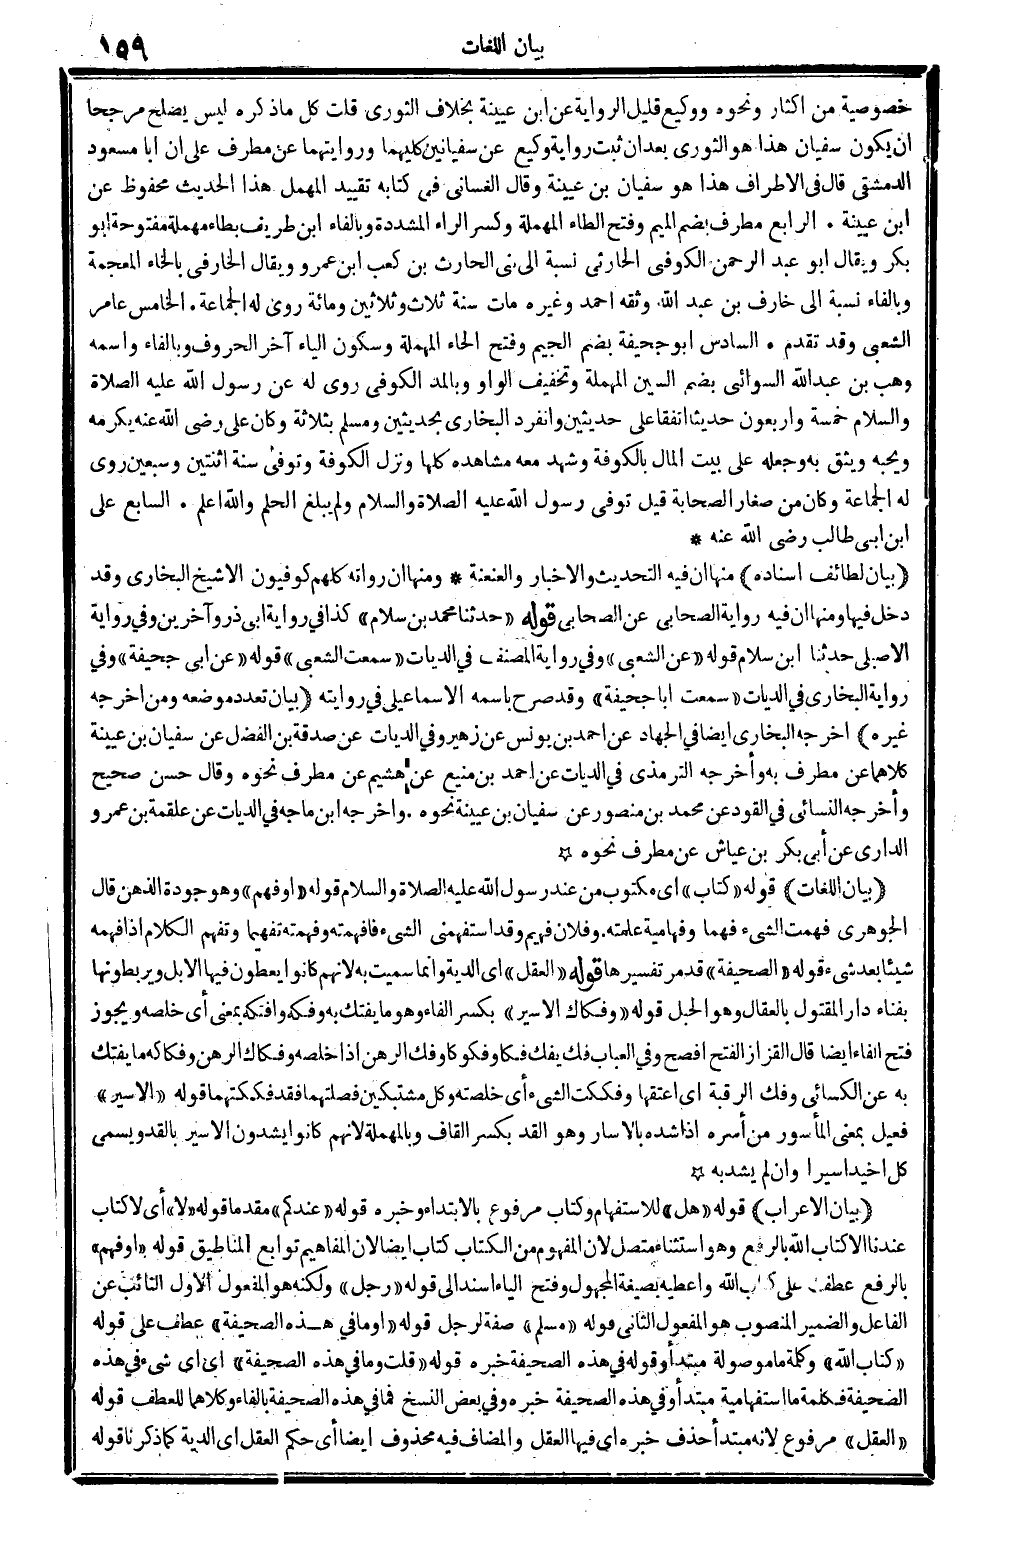 بيان اللغات ١٥٩
خصوصية من اكثار ونحوه ووكيع قليل الرواية عن ابن عيينة بخلاف الثورى قلت كل ماذكره ليس يصلح مرجحا
ان يكون سفيان هذا هو الثورى بعد ان ثبت رواية وكيع عن سفيانين كليهما وروايتهما عن مطرف على ان ابا مسعود
الدمشقى قال فى الاطراف هذا هو سفيان بن عيينة وقال الغسانى فى كتابه تقييد المهمل هذا الحديث محفوظ عن
ابن عيينة . الرابع مطرف بضم الميم وفتح الطاء المهملة وكسر الراء المشددة وبالفاء ابن طريف بطاء مهملة مفتوحة ابو
بكر ويقال ابو عبد الرحمن الكوفى الحارثى نسبة الى بنى الحارث بن كعب ابن عمرو ويقال الخارفى بالخاء المعجمة
وبالفاء نسبة الى خارف بن عبد الله وثقه احمد وغيره مات سنة ثلاث وثلاثين ومائة روى له الجماعة . الخامس عامر
الشعبى وقد تقدم . السادس ابو جحيفة بضم الجيم وفتح الحاء المهملة وسكون الياء آخر الحروف وبالفاء واسمه
وهب بن عبدالله السوائى بضم السين المهملة وتخفيف الواو وبالمد الكوفى روى له عن رسول الله عليه الصلاة
والسلام خمسة واربعون حديثا اتفقا على حديثين وانفرد البخارى بحديثين ومسلم بثلاثة وكان على رضى الله عنه يكرمه
ويحبه ويثق به وجعله على بيت المال بالكوفة وشهد معه مشاهده كلها ونزل الكوفة وتوفى سنة اثنتين وسبعين روى
له الجماعة وكان من صغار الصحابة قيل توفى رسول الله عليه الصلاة والسلام ولم يبلغ الحلم والله اعلم . السابع على
ابن ابى طالب رضى الله عنه *
(بيان لطائف اسناده) منها ان فيه التحديث والاخبار والعنعنة * ومنها ان رواته كلهم كوفيون الا شيخ البخارى وقد
دخل فيها ومنها ان فيه رواية الصحابى عن الصحابى قوله «حدثنا محمد بن سلام» كذا فى رواية ابى ذر وآخرين وفى رواية
الاصيلى حدثنا ابن سلام قوله «عن الشعبى» وفى رواية المصنف فى الديات «سمعت الشعبى» قوله «عن ابى جحيفة» وفى
رواية البخارى فى الديات «سمعت ابا جحيفة» وقد صرح باسمه الاسماعيلى فى روايته (بيان تعدد موضعه ومن اخرجه
غيره) اخرجه البخارى ايضا فى الجهاد عن احمد بن يونس عن زهير وفى الديات عن صدقة بن الفضل عن سفيان بن عيينة
كلاهما عن مطرف به وأخرجه الترمذى فى الديات عن احمد بن منيع عن هشيم عن مطرف نحوه وقال حسن صحيح
وأخرجه النسائى فى القود عن محمد بن منصور عن سفيان بن عيينة نحوه . واخرجه ابن ماجه فى الديات عن علقمة بن عمرو
الدارى عن أبى بكر بن عياش عن مطرف نحوه ☆
(بيان اللغات) قوله «كتاب» اى مكتوب من عند رسول الله عليه الصلاة والسلام قوله «اوفهم» وهو جودة الذهن قال
الجوهرى فهمت الشىء فهما وفهامية علمته . وفلان فهيم وقد استفهمنى الشىء فافهمته وفهمته تفهيما وتفهم الكلام اذا فهمه
شيئا بعد شىء قوله «الصحيفة» قد مر تفسيرها قوله «العقل» اى الدية وانما سميت به لانهم كانوا يعطون فيها الابل ويربطونها
بفناء دار المقتول بالعقال وهو الحبل قوله «وفكاك الاسير» بكسر الفاء وهو ما يفتك به وفكه وافتكه بمعنى أى خلصه ويجوز
فتح الفاء ايضا قال القزاز الفتح افصح وفى العباب فك يفك فكا وفكوكا وفك الرهن اذا خلصه وفكاك الرهن وفكاكه ما يفتك
به عن الكسائى وفك الرقبة اى اعتقها وفككت الشىء أى خلصته وكل مشتبكين فصلتهما فقد فككتهما قوله «الاسير»
فعيل بمعنى المأسور من أسره اذا شده بالاسار وهو القد بكسر القاف وبالمهملة لانهم كانوا يشدون الاسير بالقد ويسمى
كل اخيذ اسيرا وان لم يشد به ☆
(بيان الاعراب) قوله «هل» للاستفهام وكتاب مرفوع بالابتداء وخبره قوله «عندكم» مقدما قوله «لا» أى لا كتاب
عندنا الا كتاب الله بالرفع وهو استثناء متصل لان المفهوم من الكتاب كتاب ايضا لان المفاهيم توابع المناطيق قوله «اوفهم»
بالرفع عطف على كتاب الله واعطيه بصيغة المجهول وفتح الياء اسند الى قوله «رجل» ولكنه هو المفعول الاول النائب عن
الفاعل والضمير المنصوب هو المفعول الثانى قوله «مسلم» صفة لرجل قوله «اوما فى هذه الصحيفة» عطف على قوله
«كتاب الله» وكلة ما موصولة مبتدأ وقوله فى هذه الصحيفة خبره قوله «قلت وما فى هذه الصحيفة» اى اى شىء فى هذه
الصحيفة فكلمة ما استفهامية مبتدأ وفى هذه الصحيفة خبره وفى بعض النسخ فما فى هذه الصحيفة بالفاء وكلاهما للعطف قوله
«العقل» مرفوع لانه مبتدأ حذف خبره اى فيها العقل والمضاف فيه محذوف ايضا أى حكم العقل اى الدية كما ذكرنا قوله